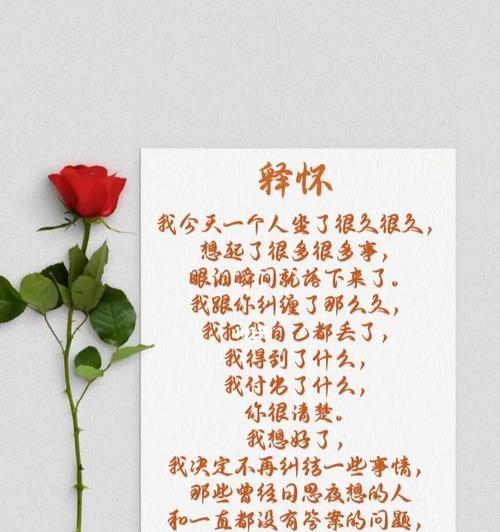 释怀
我今天一个人坐了很久很久，
想起了很多很多事，
眼泪瞬间就掉下来了。
我跟你纠缠了那么久，
我把我自己都丢了，
我得到了什么，
我付出了什么，
你很清楚。
我想好了，
我决定不再纠结一些事情，
那些曾经日思夜想的人
和一直都没有答案的问题，